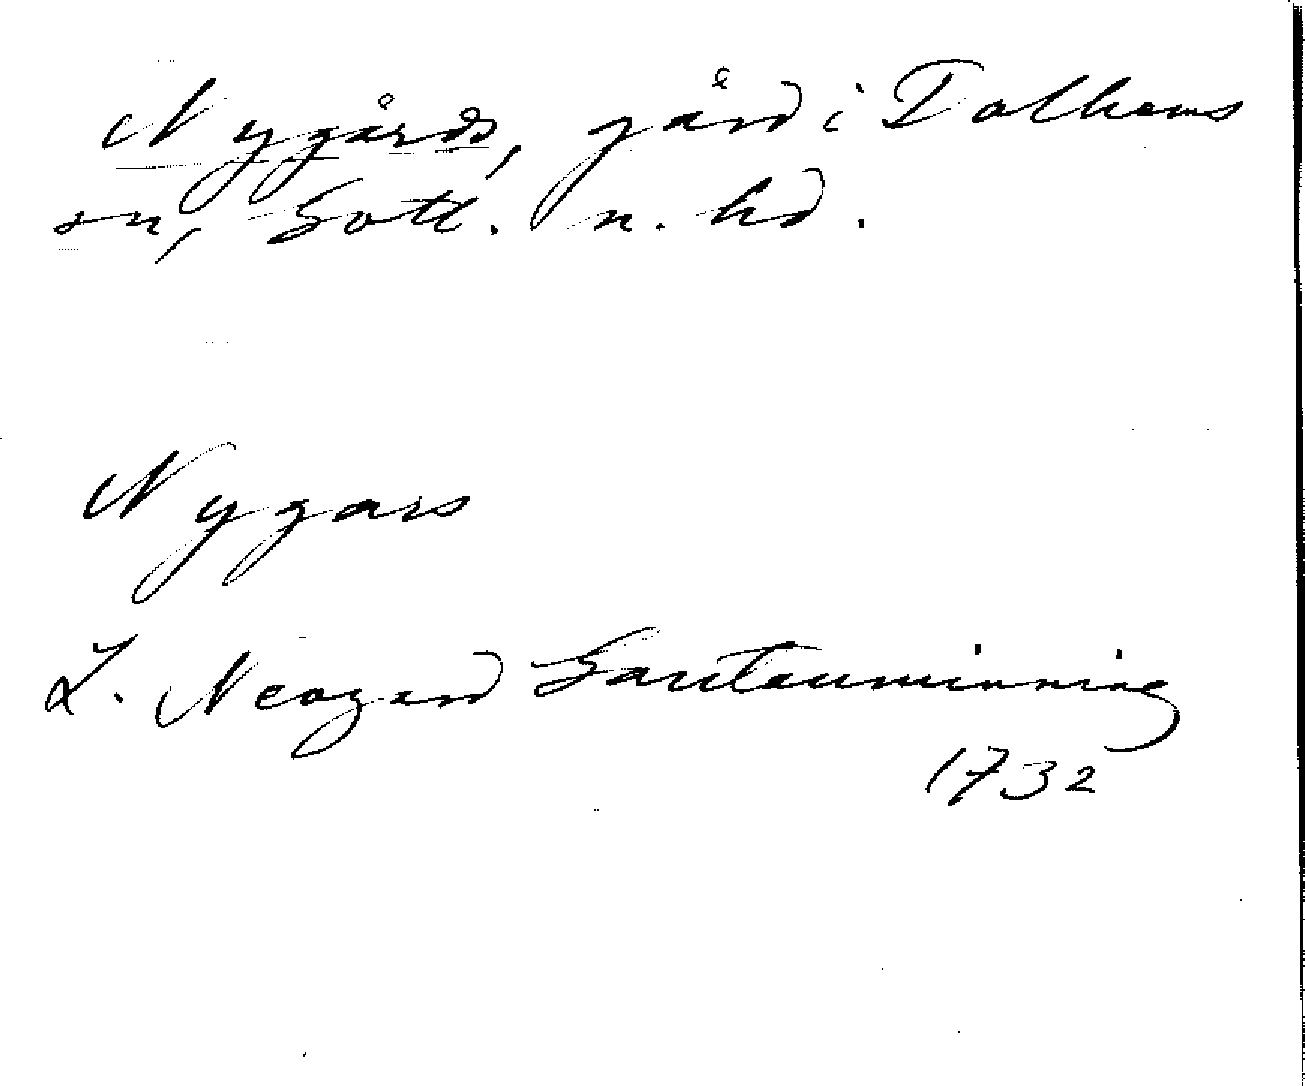 Nygårds, gård i Dalhems
sn, Gotl. n. hd.
Nygars
L. Neogard Gautauminning
1732